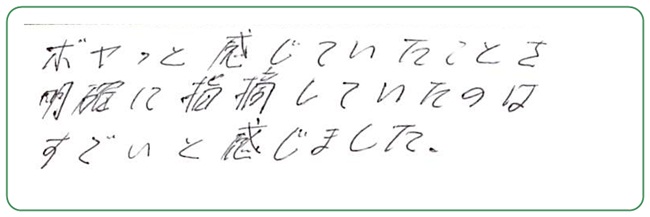 ボヤっと感じていたことを
明確に指摘していたのは
すごいと感じました。